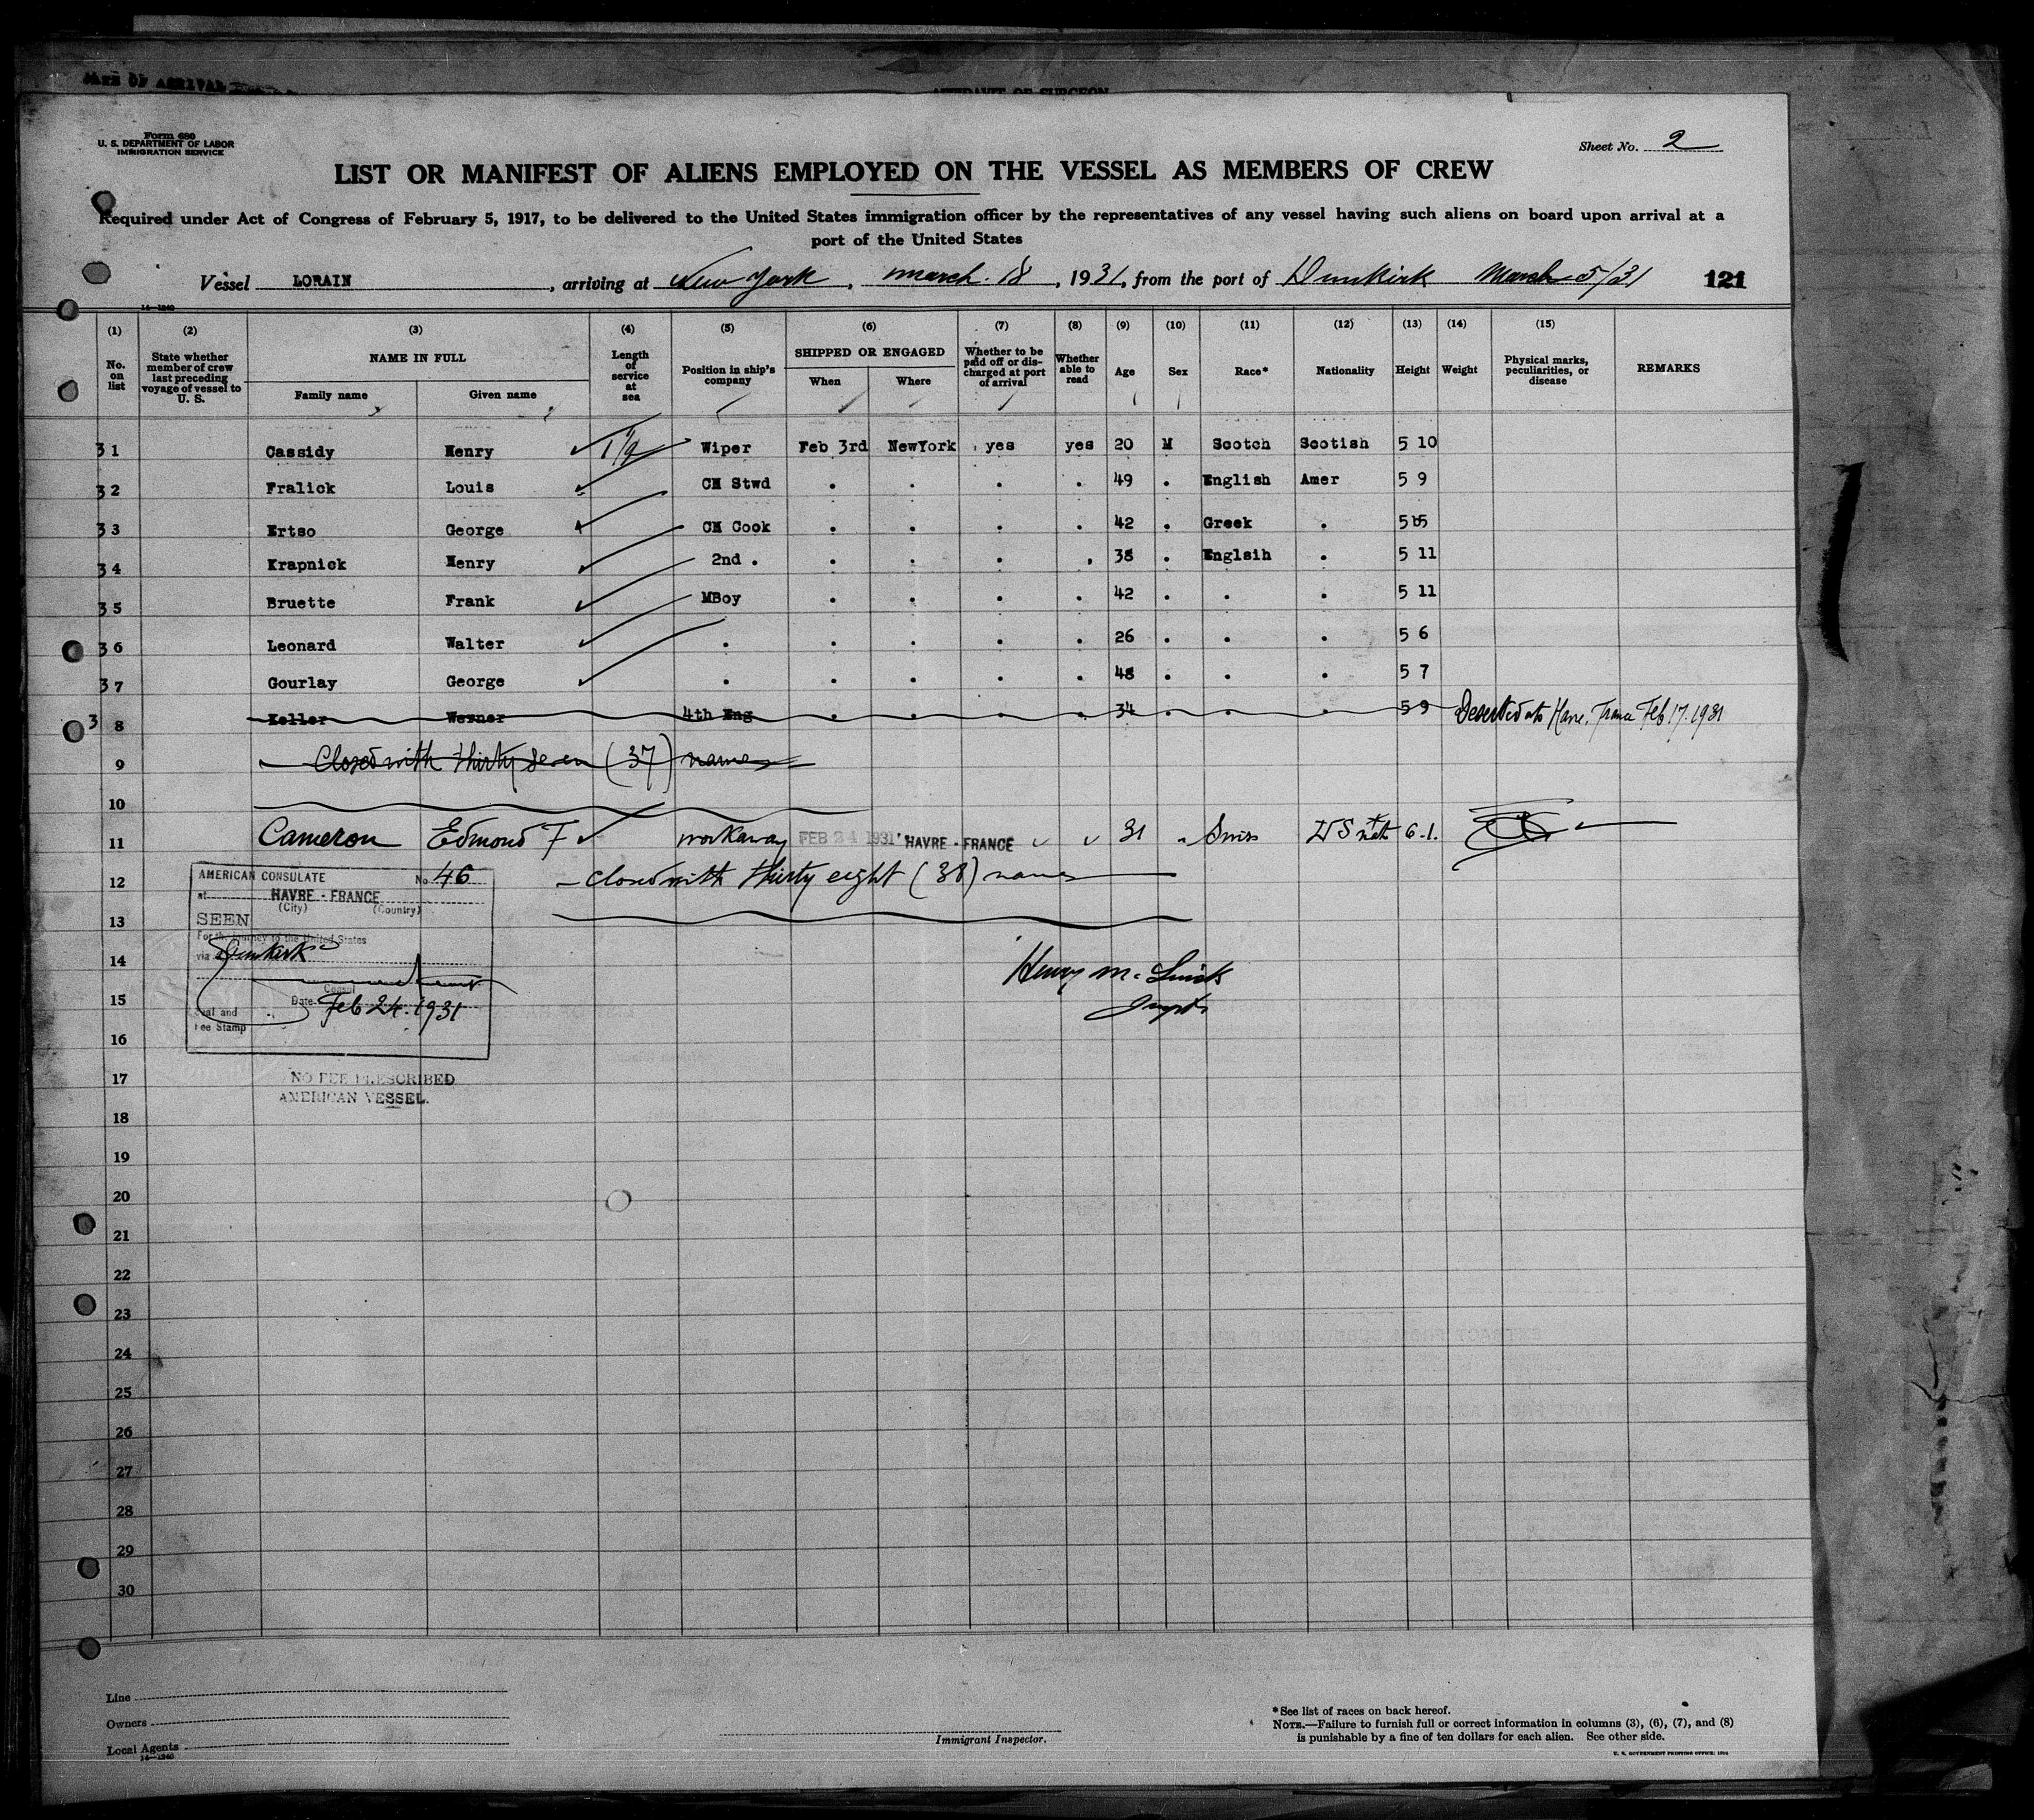 DATE OF ARRIVAL
AFFIDAVIT OF SURGEON
Form 680
U. S. DEPARTMENT OF LABOR
IMMIGRATION SERVICE
Sheet No. 2
LIST OR MANIFEST OF ALIENS EMPLOYED ON THE VESSEL AS MEMBERS OF CREW
Required under Act of Congress of February 5, 1917, to be delivered to the United States immigration officer by the representatives of any vessel having such aliens on board upon arrival at a
port of the United States
Vessel LORAIN, arriving at New York, March 18, 1931, from the port of Dunkirk March 5/31 121
14—1240
(1) (2) (3) (4) (5) (6) (7) (8) (9) (10) (11) (12) (13) (14) (15)
No. on list State whether member of crew last preceding voyage of vessel to U. S. NAME IN FULL Family name Given name Length of service at sea Position in ship's company SHIPPED OR ENGAGED When Where Whether to be paid off or discharged at port of arrival Whether able to read Age Sex Race* Nationality Height Weight Physical marks, peculiarities, or disease REMARKS
31 Cassidy Henry Wiper Feb 3rd NewYork yes yes 20 M Scotch Scotish 5 10
32 Fralick Louis CH Stwd . . . . 49 . English Amer 5 9
33 Ertso George CH Cook . . . . 42 . Greek . 5 5
34 Krapnick Henry 2nd . . . . . 38 . Englsih . 5 11
35 Bruette Frank MBoy . . . . 42 . . . 5 11
36 Leonard Walter . . . . . 26 . . . 5 6
37 Gourlay George . . . . . 48 . . . 5 7
38 Keller Werner 4th Eng . . . . 34 . . . 5 9 Deserted at Havre, France Feb 17. 1931
9 Closed with thirty seven (37) names
10
11 Cameron Edmond F workaway FEB 24 1931 HAVRE - FRANCE 31 Swiss U S nat 6-1.
12 closed with thirty eight (38) names
13
14
15
16
17
18
19
20
21
22
23
24
25
26
27
28
29
30
AMERICAN CONSULATE No 46
at HAVRE - FRANCE
(City) (Country)
SEEN
For the journey to the United States
via Dunkirk
Consul
Date Feb 24. 1931
Seal and
Fee Stamp
NO FEE PRESCRIBED
AMERICAN VESSEL.
Henry M.
Line
Owners
Local Agents
14—1240
Immigrant Inspector.
*See list of races on back hereof.
NOTE.—Failure to furnish full or correct information in columns (3), (6), (7), and (8)
is punishable by a fine of ten dollars for each alien. See other side.